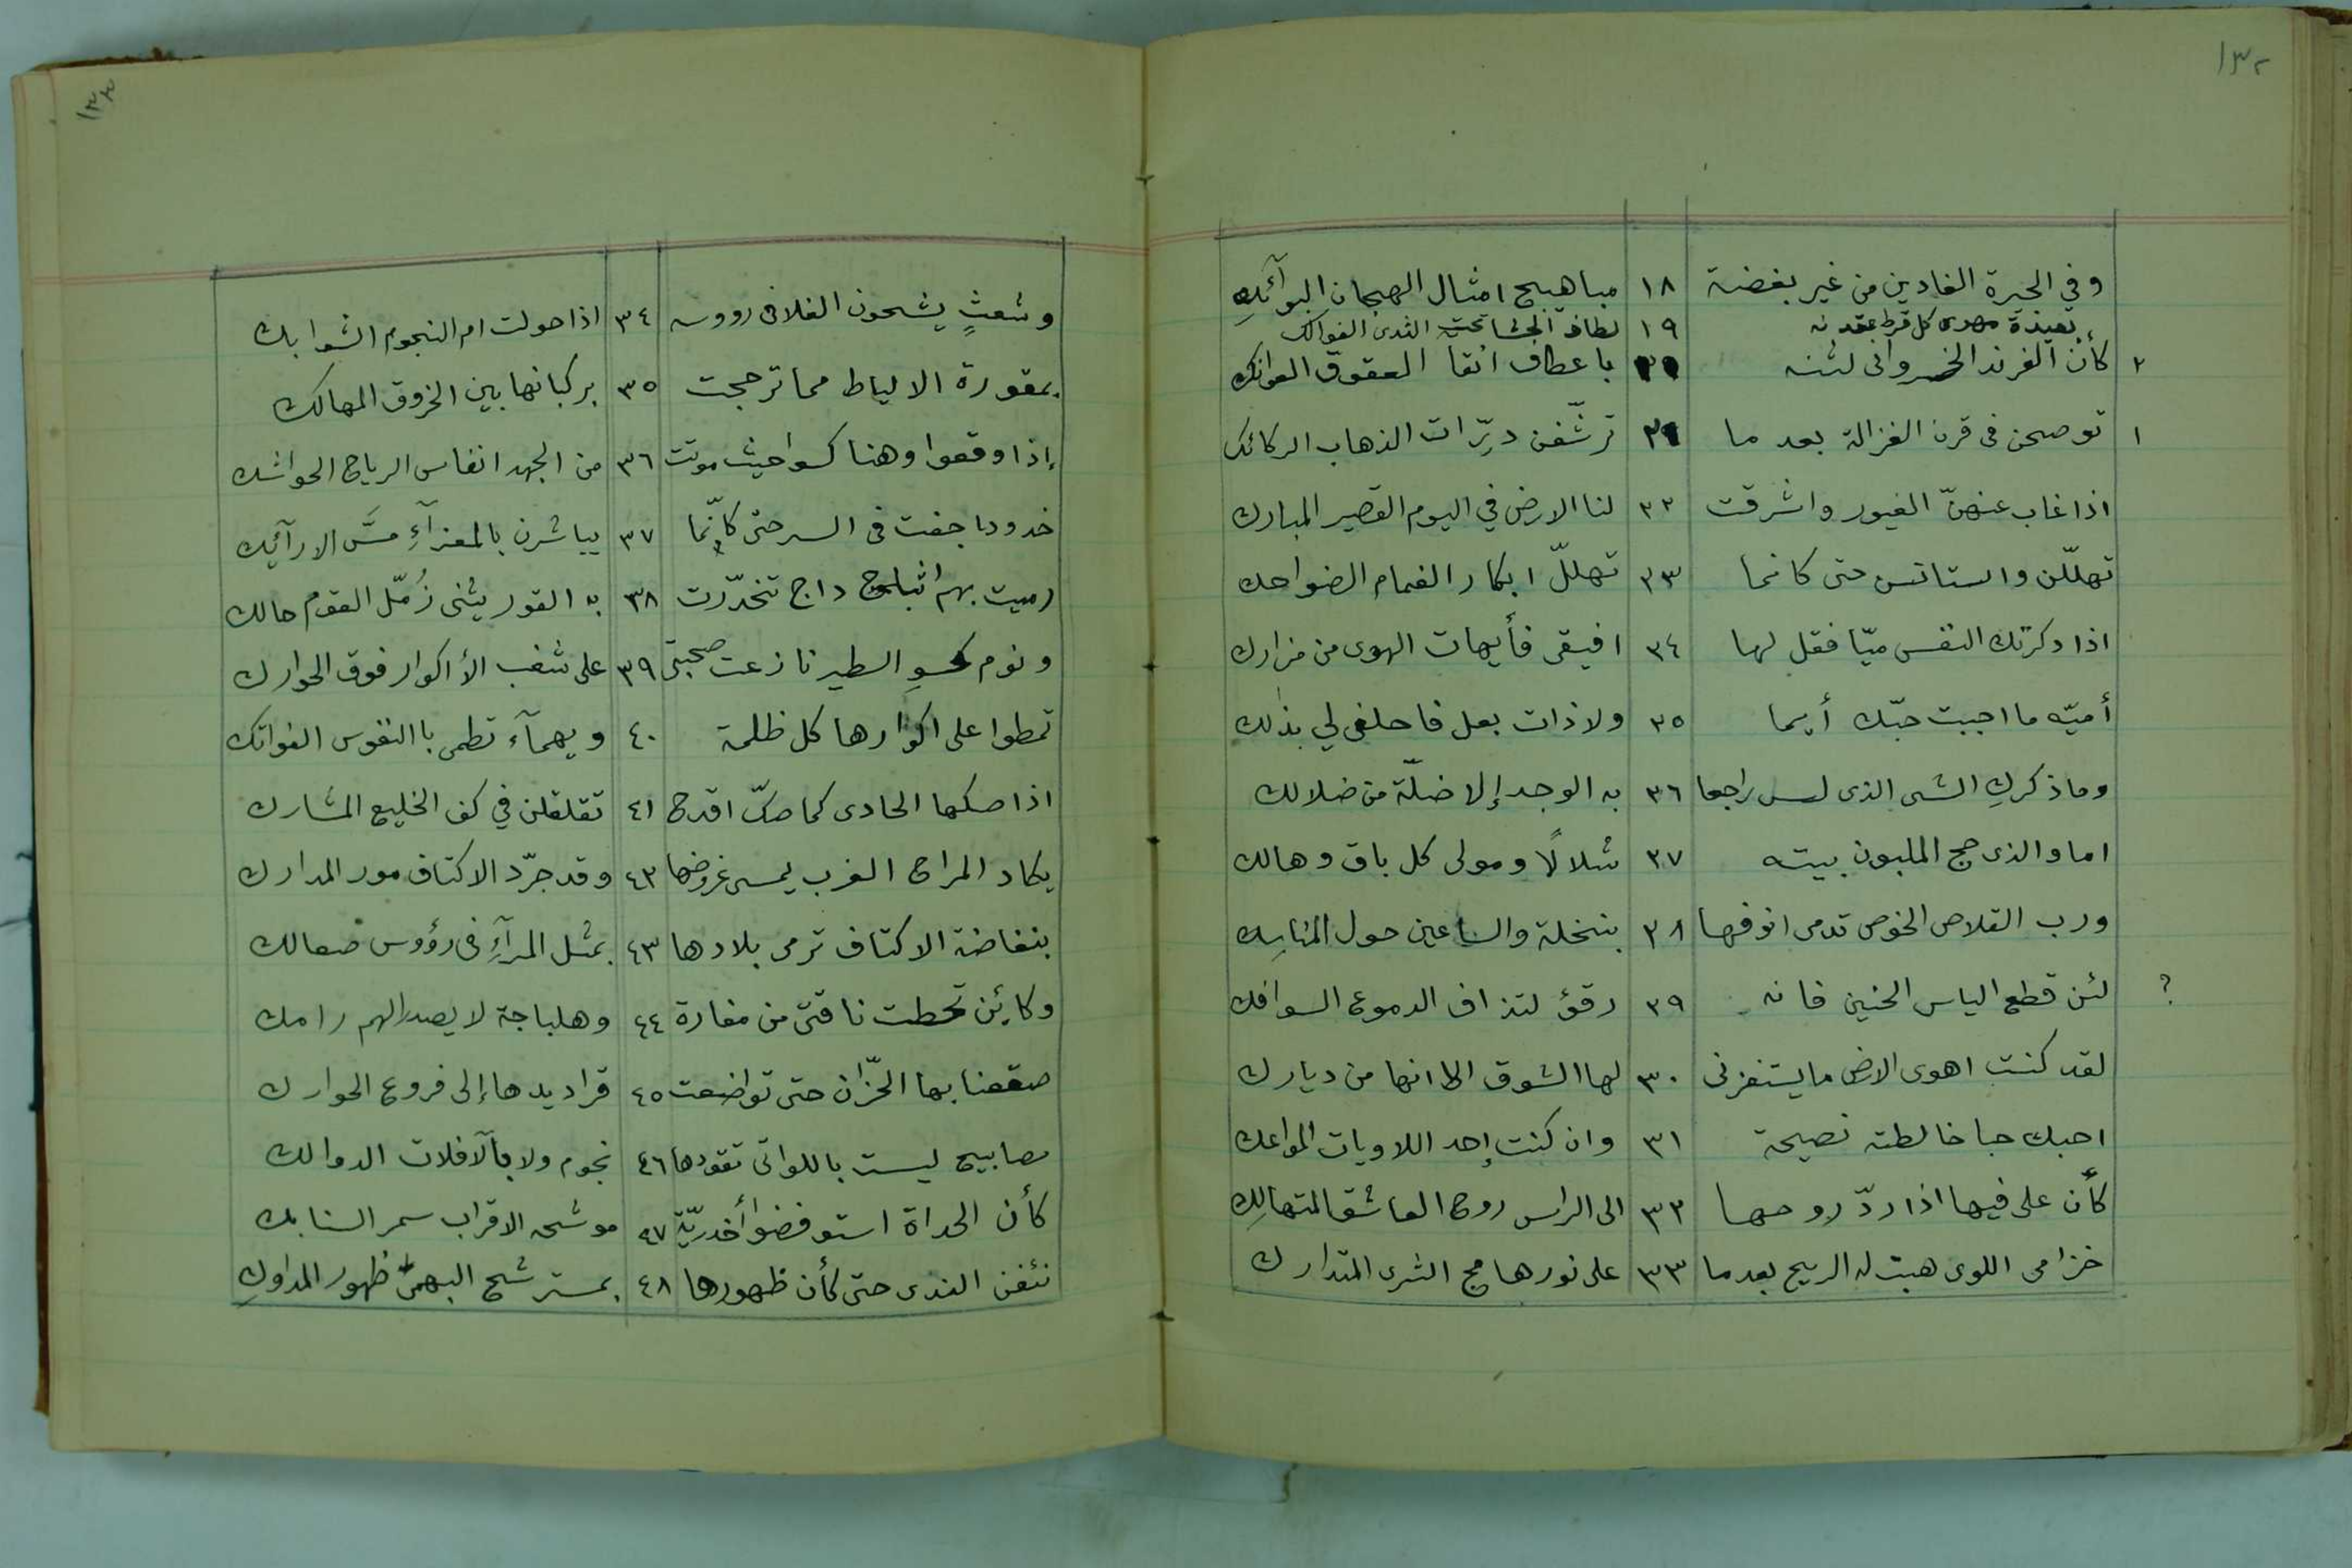 ١٣٢
وفي الحيرة الغادين من غير بغضة ١٨ مباهيج امثال الهجان البوآئكِ
بعيدة مهوى كل قرط عقدنه ١٩ لطاف الحشا تحت الثدى الفوالك
٢ كأن الفرند الخسروانى لثنه ٢٠ باعطاف انقا العقوق العوانك
١ توضحن فى قرن الغزالة بعد ما ٢١ ترشّفن دِرّات الذهاب الركائك
اذا غاب عنهنّ الغيور واشرقت ٢٢ لنا الارض في اليوم القصير المبارك
تهلّلن واستانسن حتى كانما ٢٣ تهللّ ابكار الغمام الضواحك
اذا ذكرتك النفس ميّا فقل لها ٢٤ افيقى فأيهات الهوى من مزارك
أميّه ما احببت حبّك أيما ٢٥ ولا ذات بعل فاحلفى لي بذلك
وما ذكركِ الشى الذى ليس راجعا ٢٦ به الوجد إلا ضلّة من ضلالك
اما والذى حج الملبون بيته ٢٧ شلالًا ومولى كل باق وهالك
ورب القلاص الخوص تدمى انوفها ٢٨ بنخلة والساعين حول المناسِك
؟ لئن قطع الياس الحنين فانه ٢٩ رقؤ لتذراف الدموع السوافك
لقد كنت اهوى الارض ما يستفزنى ٣٠ لها الشوق الا انها من ديارك
احبك حبا خالطته نصيحة ٣١ وان كنت إحد اللاويات المواعك
كأن على فيها اذا ردّ روحها ٣٢ الى الراس روح العاشق المتهالِك
خزامى اللوى هبت له الريح بعدما ٣٣ على نورها مج الثرى المتدارك
١٣٣
وشعثٍ يشجون الفلا فى رووسه ٣٤ اذا حولت ام النجوم الشوابك
بمقورة الالياط مما ترجحت ٣٥ بركبانها بين الخروق المهالك
إذا وقعوا وهنا كسوا حيث موتت ٣٦ من الجهد انفاس الرياح الحواشك
خدودا جفت فى السير حتى كأنّما ٣٧ يباشرن بالمعزآءِ مسَّ الارآئِك
رميت بهم اثباج داج تخدّرت ٣٨ به القور يثنى زُمّل القوم حالك
ونوم كحسوِ الطير نازعت صحبتى ٣٩ على شعب الأكوار فوق الحوارك
تمطوا على اكوارها كل ظلمة ٤٠ ويهمآء تطمى بالنفوس الفواتك
اذا صكها الحادى كما صكّ اقدح ٤١ تقلقلن في كف الخليع المشارك
يكاد المراح الغرب يمسى غروضها ٤٢ وقد جرّد الاكتاف مور المدارك
بنغاضة الاكتاف ترمى بلادها ٤٣ بمثل المرآءِ فى رؤوس صعالك
وكائن تخطت ناقتى من مفازة ٤٤ وهلباجة لا يصدر الهم رامك
صقعنا بها الحزّان حتى تواضعت ٤٥ قراديدها إلى فروع الحوارك
مصابيح ليست باللواتى تقودها ٤٦ نجوم ولا بالآفلات الدوالك
كأن الحداة استوفضوا أخدريّة ٤٧ موشحه الاقراب سمر السنابك
نئفن الندى حتى كأن ظهورها ٤٨ بمسترشح البهمى ظهور المداوكِ